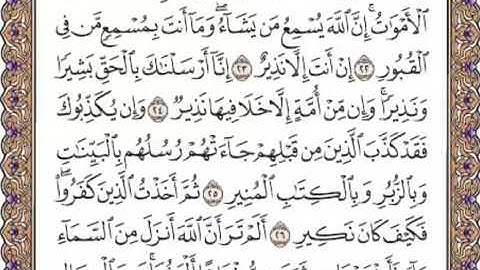 ٱلْأَمْوَٰتُ ۚ إِنَّ ٱللَّهَ يُسْمِعُ مَن يَشَآءُ ۖ وَمَآ أَنتَ بِمُسْمِعٍ مَّن فِى
ٱلْقُبُورِ ٢٢ إِنْ أَنتَ إِلَّا نَذِيرٌ ٢٣ إِنَّآ أَرْسَلْنَٰكَ بِٱلْحَقِّ بَشِيرًا
وَنَذِيرًا ۚ وَإِن مِّنْ أُمَّةٍ إِلَّا خَلَا فِيهَا نَذِيرٌ ٢٤ وَإِن يُكَذِّبُوكَ
فَقَدْ كَذَّبَ ٱلَّذِينَ مِن قَبْلِهِمْ جَآءَتْهُمْ رُسُلُهُم بِٱلْبَيِّنَٰتِ
وَبِٱلزُّبُرِ وَبِٱلْكِتَٰبِ ٱلْمُنِيرِ ٢٥ ثُمَّ أَخَذْتُ ٱلَّذِينَ كَفَرُوا۟ ۖ
فَكَيْفَ كَانَ نَكِيرِ ٢٦ أَلَمْ تَرَ أَنَّ ٱللَّهَ أَنزَلَ مِنَ ٱلسَّمَآءِ